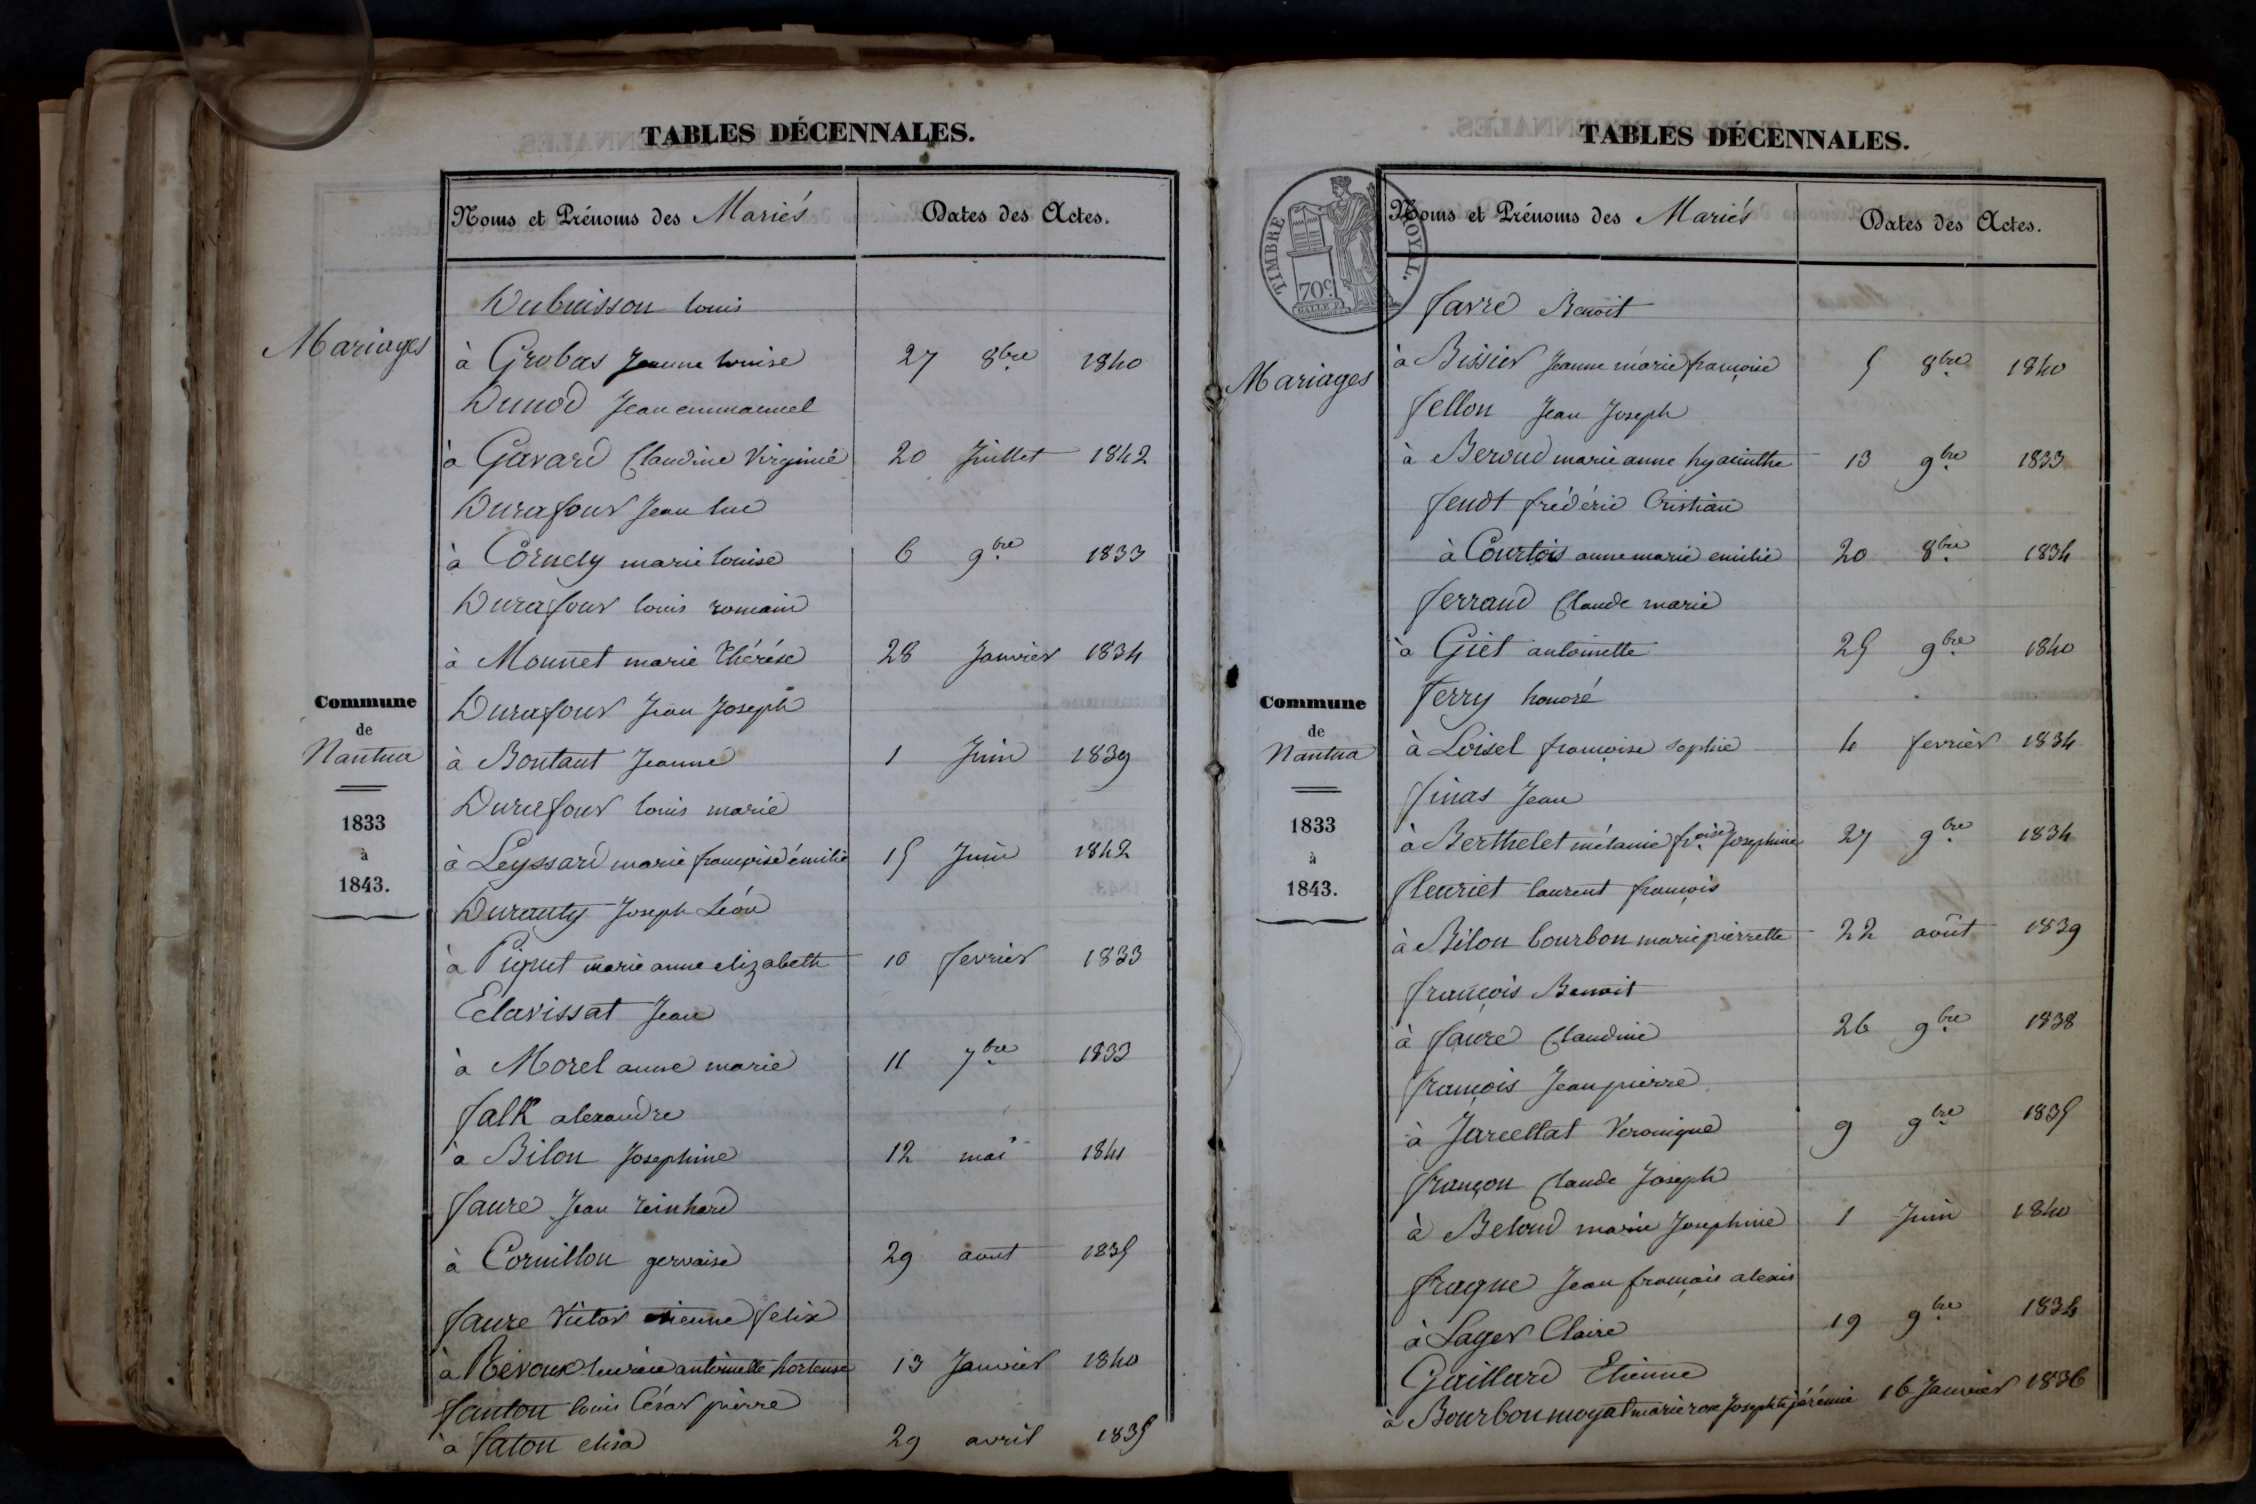 TABLES DÉCENNALES.
Noms et Prénoms des Mariés
Dates des Actes.
Mariages
Commune
de
Nantua
1833
à
1843.
Dubuisson louis
à Grobas Jeanne louise 27 8bre 1840
Dunod Jean emmanuel
à Gavard Claudine Virginie 20 Juillet 1842
Durafour Jean luc
à Cornely marie louise 6 9bre 1833
Durafour louis romain
à Monnet marie Thérése 28 Janvier 1834
Durafour Jean Joseph
à Boutaut Jeanne 1 Juin 1839
Durafour louis marie
à Leyssard marie françoise émilie 15 Juin 1842
Duranty Joseph Léon
à Piquet marie anne elizabeth 10 fevrier 1833
Eclavissat Jean
à Morel anne marie 11 7bre 1833
falk alexandre
à Bilon Josephine 12 mai 1841
faure Jean reinhard
à Cornillon gervaise 29 aout 1835
faure Victor etienne felix
à Révoux antoinette hortense 13 Janvier 1840
fanton louis César pierre
à faton elisa 29 avril 1835
TABLES DÉCENNALES.
TIMBRE ROYAL.
70c
Noms et Prénoms des Mariés
Dates des Actes.
Mariages
Commune
de
Nantua
1833
à
1843.
favre Benoit
à Bissier Jeanne marie françoise 5 8bre 1840
fellon Jean Joseph
à Beroud marie anne hyacinthe 13 9bre 1833
fendt frédéric Cristian
à Courtois anne marie emilie 20 8bre 1834
ferrand Claude marie
à Giet antoinette 25 9bre 1840
ferry honoré
à Loisel françoise sophie 4 fevrier 1834
finas Jean
à Berthelet mélanie froise Josephine 27 9bre 1834
fleuriet laurent françois
à Bilon bourbon marie pierrette 22 août 1839
françois Benoit
à faure Claudine 26 9bre 1838
françois Jean pierre
à Jarcellat Veronique 9 9bre 1835
françon Claude Joseph
à Beloud marie Josephine 1 Juin 1840
fraque Jean françois alexis
à Lager Claire 19 9bre 1834
Gaillard Etienne
à Bourbon moyat marie rose Josephte jérémie 16 Janvier 1836